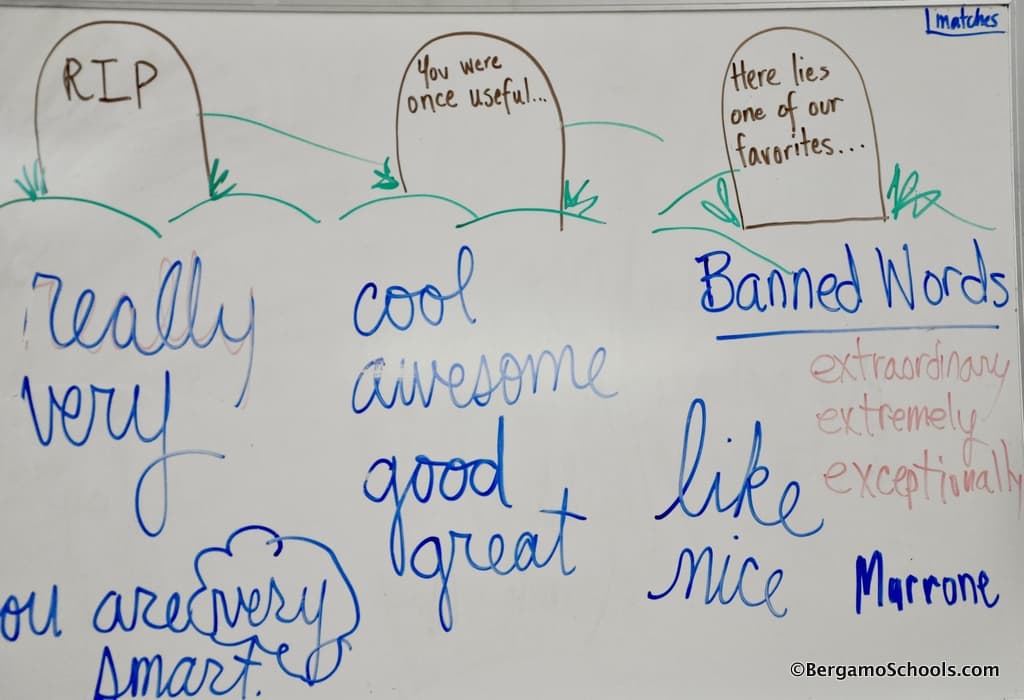 1 matches
RIP
You were
once useful...
Here lies
one of our
favorites...
Banned Words
really
very
cool
awesome
good
great
extraordinary
extremely
exceptionally
like
nice
Marrone
ou are very
smart.
©BergamoSchools.com